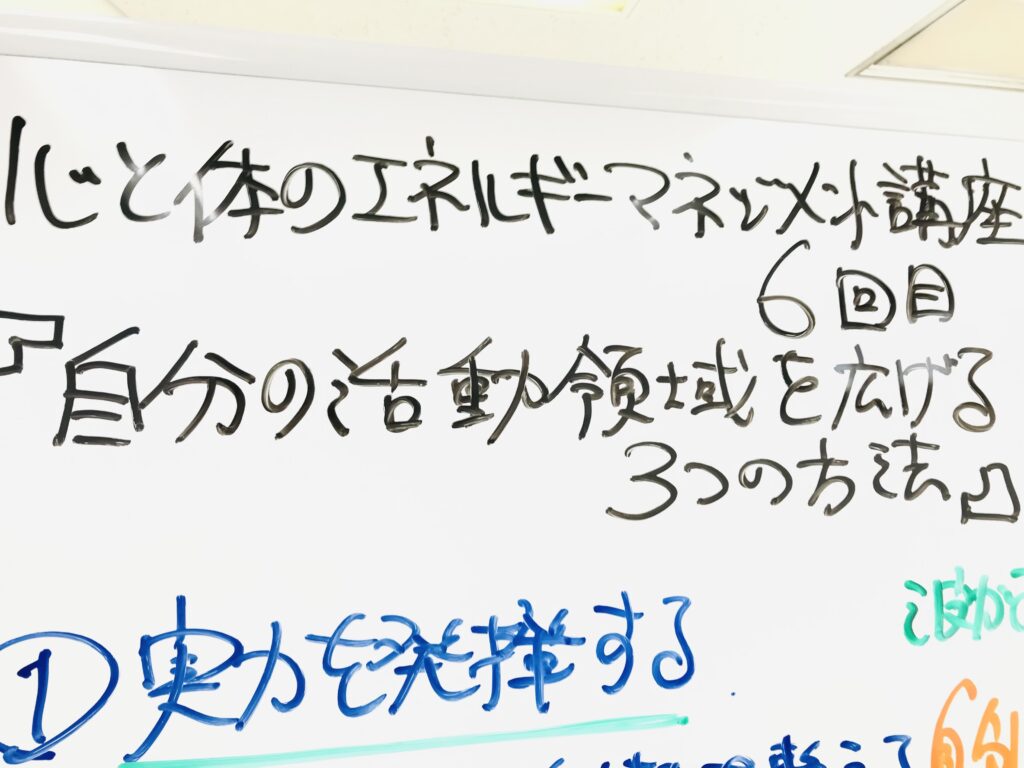 心と体のエネルギーマネジメント講座
6回目
『自分の活動領域を広げる
3つの方法』
①実力を発揮する